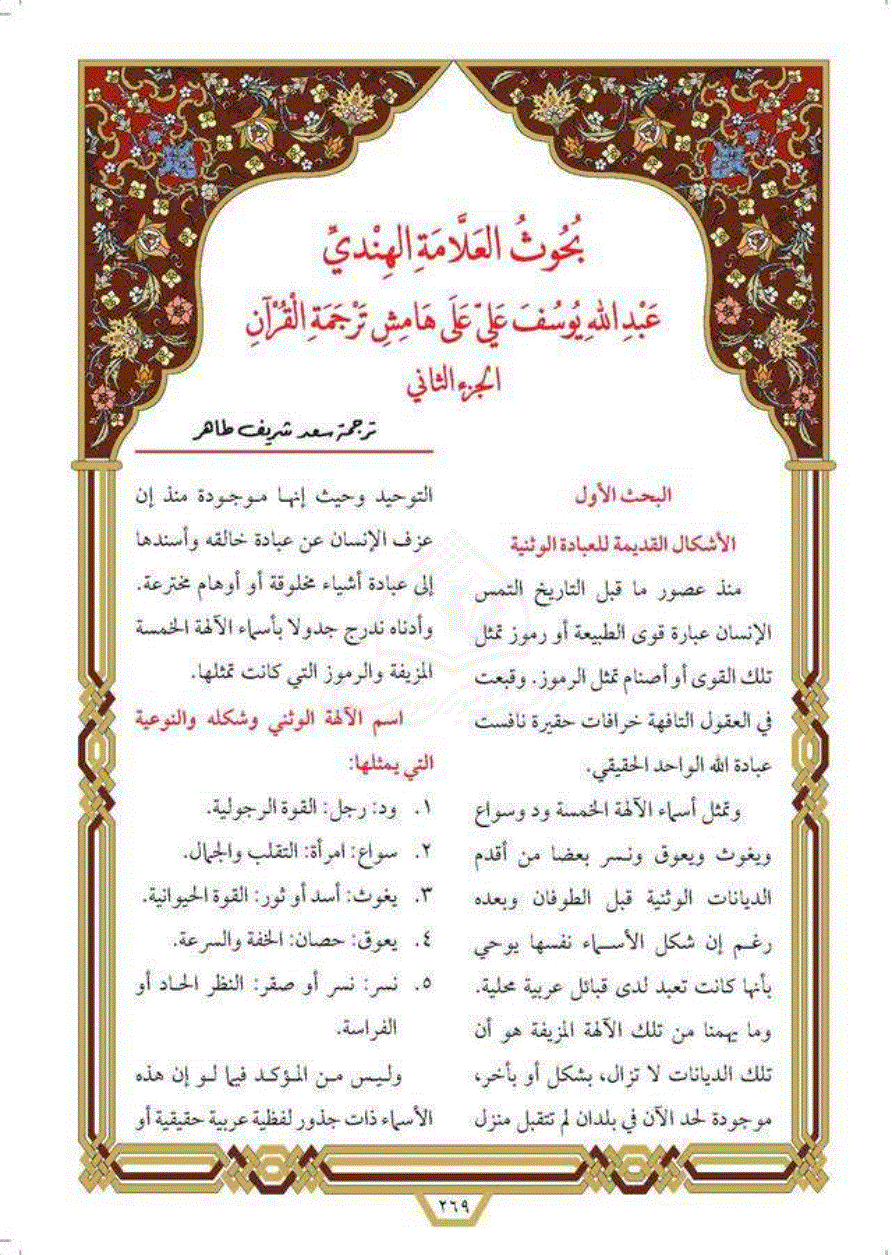 بُحُوثُ العَلَّامَةِ الهِنْديِّ
عَبْدِ اللهِ يُوسُفَ عَليّ عَلَى هَامِشِ تَرْجَمَةِ الْقُرْآنِ
الجزء الثاني
ترجمة سعد شريف طاهر
البحث الأول
الأشكال القديمة للعبادة الوثنية
منذ عصور ما قبل التاريخ التمس
الإنسان عبارة قوى الطبيعة أو رموز تمثل
تلك القوى أو أصنام تمثل الرموز. وقبعت
في العقول التافهة خرافات حقيرة نافست
عبادة الله الواحد الحقيقي.
وتمثل أسماء الآلهة الخمسة ود وسواع
ويغوث ويعوق ونسر بعضا من أقدم
الديانات الوثنية قبل الطوفان وبعده
رغم إن شكل الأسماء نفسها يوحي
بأنها كانت تعبد لدى قبائل عربية محلية.
وما يهمنا من تلك الآلهة المزيفة هو أن
تلك الديانات لا تزال، بشكل أو بأخر،
موجودة لحد الآن في بلدان لم تتقبل منزل
التوحيد وحيث إنها موجودة منذ إن
عزف الإنسان عن عبادة خالقه وأسندها
إلى عبادة أشياء مخلوقة أو أوهام مخترعة.
وأدناه ندرج جدولا بأسماء الآلهة الخمسة
المزيفة والرموز التي كانت تمثلها.
اسم الآلهة الوثني وشكله والنوعية
التي يمثلها:
١. ود: رجل: القوة الرجولية.
٢. سواع: امرأة: التقلب والجمال.
٣. يغوث: أسد أو ثور: القوة الحيوانية.
٤. يعوق: حصان: الخفة والسرعة.
٥. نسر: نسر أو صقر: النظر الحاد أو
الفراسة.
وليس من المؤكد فيما لو إن هذه
الأسماء ذات جذور لفظية عربية حقيقية أو
٢٦٩